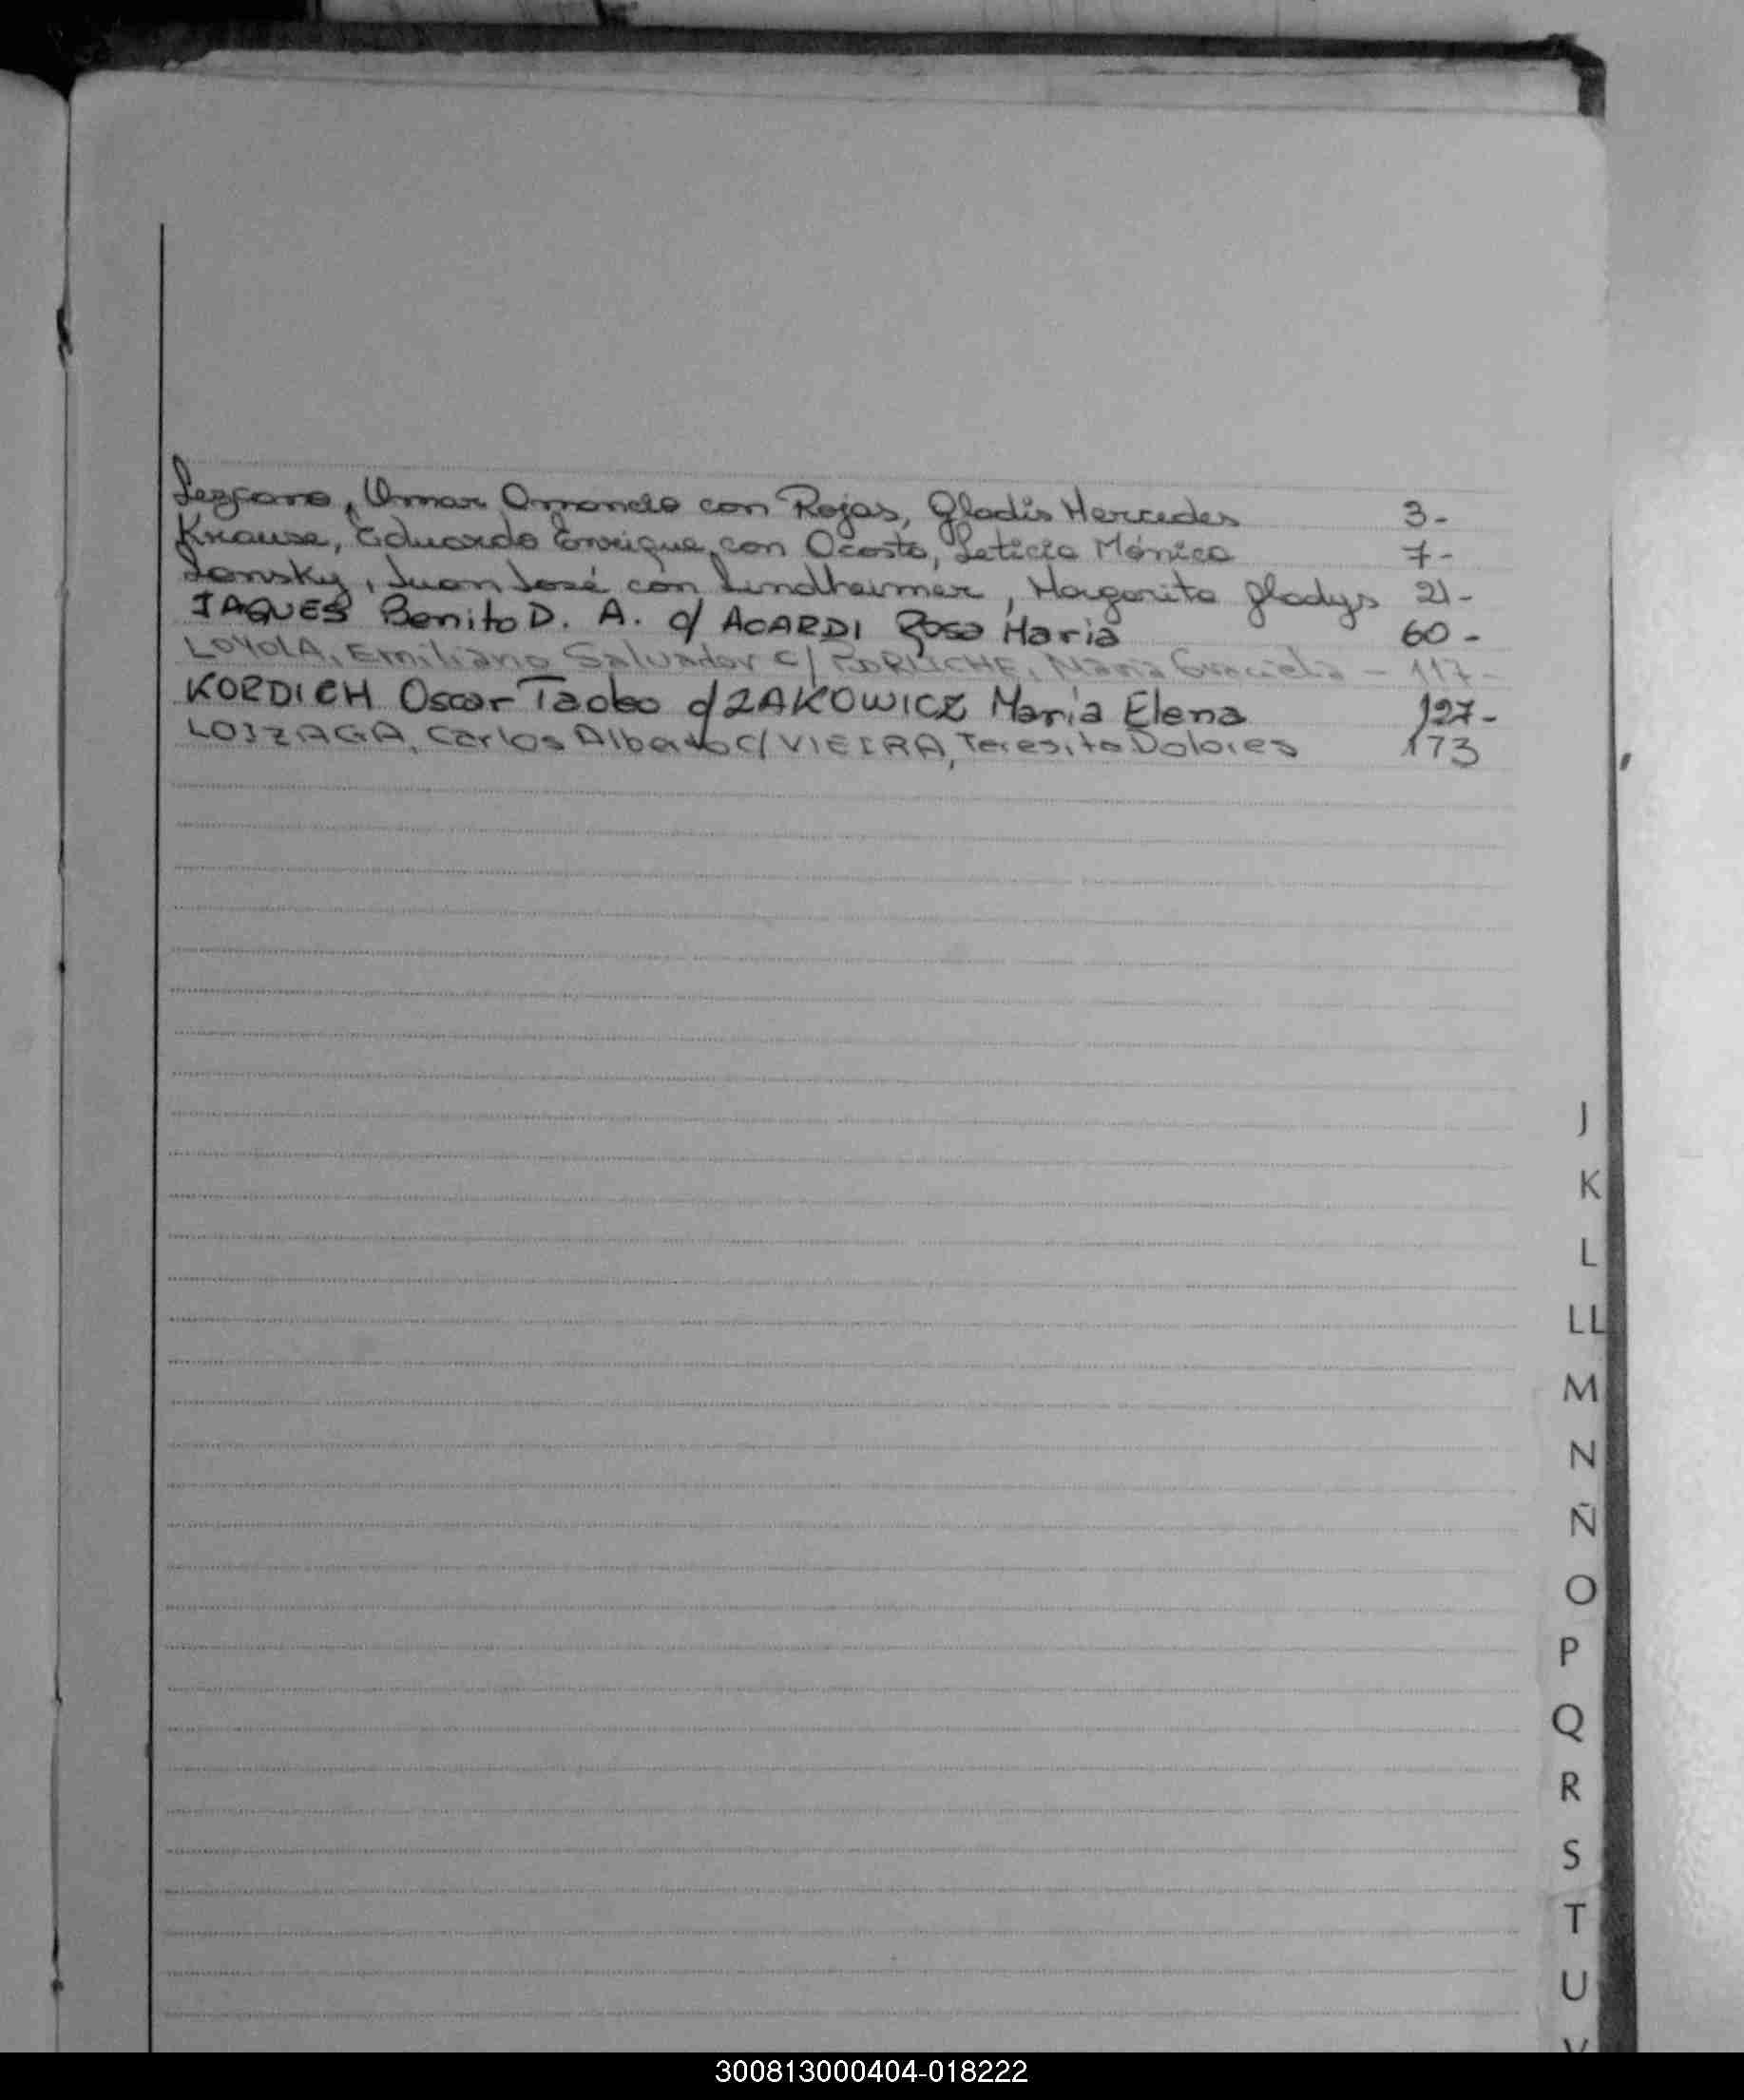 Lezcano, Omar Armando con Rojas, Gladis Mercedes 3-
Krause, Eduardo Enrique, con Acosta, Leticia Mónica 7-
Lansky, Juan José con Lindheimer, Margarita Gladys 21-
JAQUES Benito D. A. c/ ACARDI Rosa Maria 60-
LOYOLA, Emiliano Salvador c/ María Graciela - 117-
KORDICH Oscar c/ ZAKOWICZ María Elena 127-
LOIZAGA, Carlos Alberto c/ VIEIRA, Teresita Dolores 173
J
K
L
LL
M
N
Ñ
O
P
Q
R
S
T
U
V
300813000404-018222